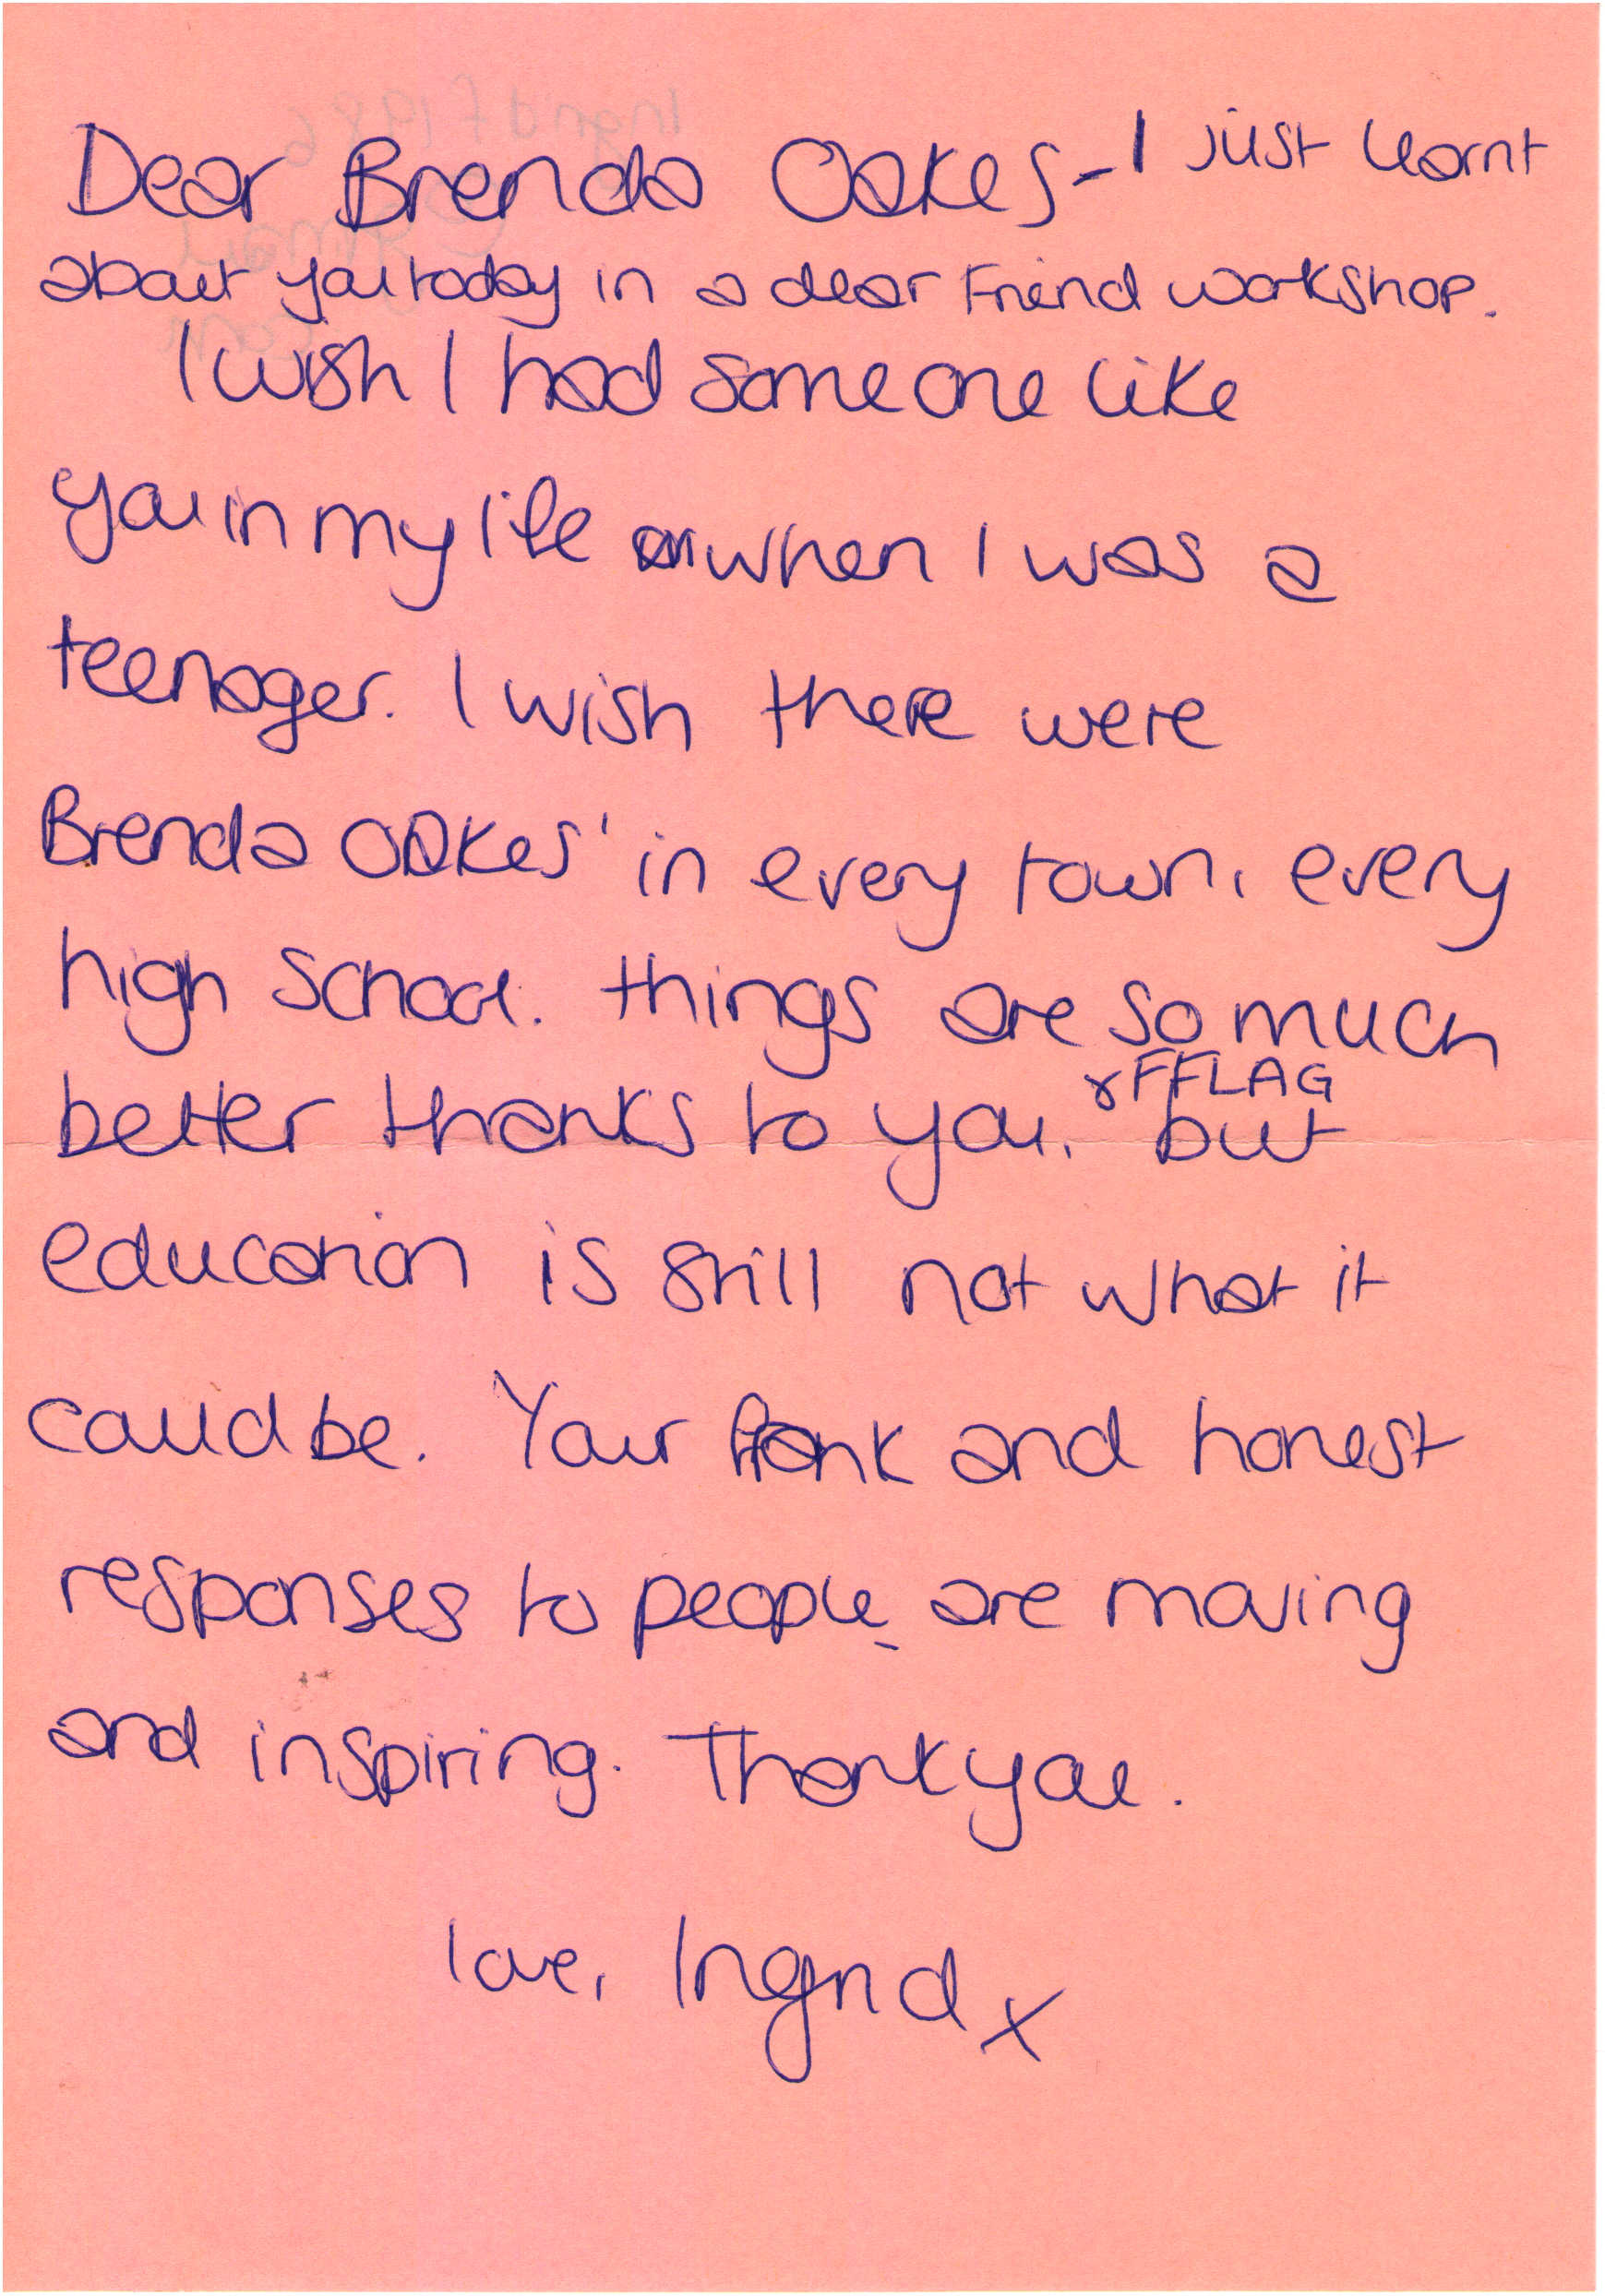 Dear Brenda Oakes - I just learnt
about you today in a dear Friend workshop.
I wish I had someone like
you in my life when I was a
teenager. I wish there were
Brenda Oakes' in every town, every
high school. things are so much
better thanks to you, & FFLAG but
education is still not what it
could be. Your frank and honest
responses to people are moving
and inspiring. Thankyou.
love, Ingrid x